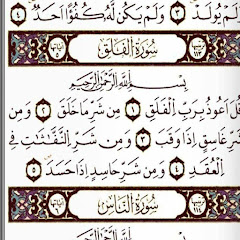 لَمْ يُولَدْ ٣ وَلَمْ يَكُن لَّهُۥ كُفُوًا أَحَدٌۢ ٤
سُورَةُ الْفَلَقِ
بِسْمِ ٱللَّهِ ٱلرَّحْمَٰنِ ٱلرَّحِيمِ
قُلْ أَعُوذُ بِرَبِّ ٱلْفَلَقِ ١ مِن شَرِّ مَا خَلَقَ ٢ وَمِن
شَرِّ غَاسِقٍ إِذَا وَقَبَ ٣ وَمِن شَرِّ ٱلنَّفَّٰثَٰتِ فِى
ٱلْعُقَدِ ٤ وَمِن شَرِّ حَاسِدٍ إِذَا حَسَدَ ٥
سُورَةُ النَّاسِ
بِسْمِ ٱللَّهِ ٱلرَّحْمَٰنِ ٱلرَّحِيمِ